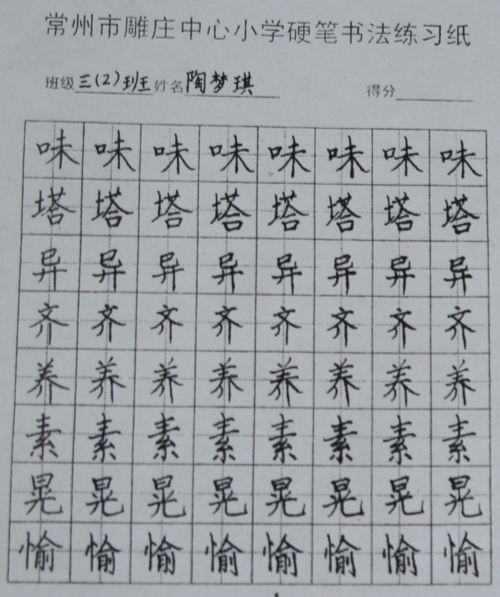 常州市雕庄中心小学硬笔书法练习纸
班级三(2)班姓名陶梦琪 得分
味味味味味味味味
塔塔塔塔塔塔塔塔
异异异异异异异异
齐齐齐齐齐齐齐齐
养养养养养养养养
素素素素素素素素
晃晃晃晃晃晃晃晃
愉愉愉愉愉愉愉愉